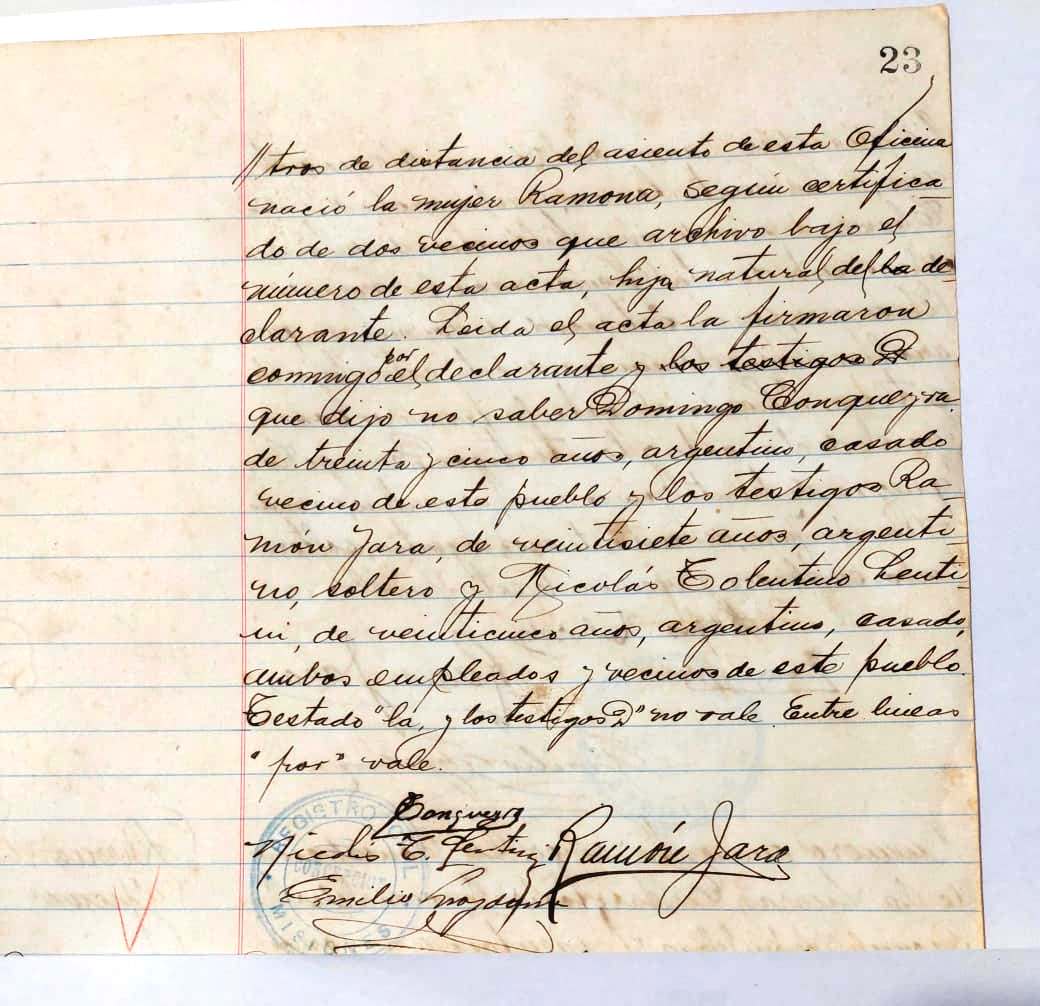 23
// tros de distancia del asiento de esta Oficina
nació la mujer Ramona, según certifica
do de dos vecinos que archivo bajo el
número de esta acta, hija natural del la de
clarante. Leida el acta la firmaron
conmigo por el declarante y los testigos D
que dijo no saber Domingo Conqueyra
de treinta y cinco años, argentino, casado
vecino de este pueblo y los testigos Ra-
món Jara, de veintisiete años, argenti-
no, soltero y Nicolás Tolentino Lenti-
ni, de veinticinco años, argentino, casado,
ambos empleados y vecinos de este pueblo.
Testado "la, y los testigos D" no vale. Entre lineas
"por" vale.
REGISTRO CIVIL
Nicolás T. Ramón Jara
Emilio
MISIONES